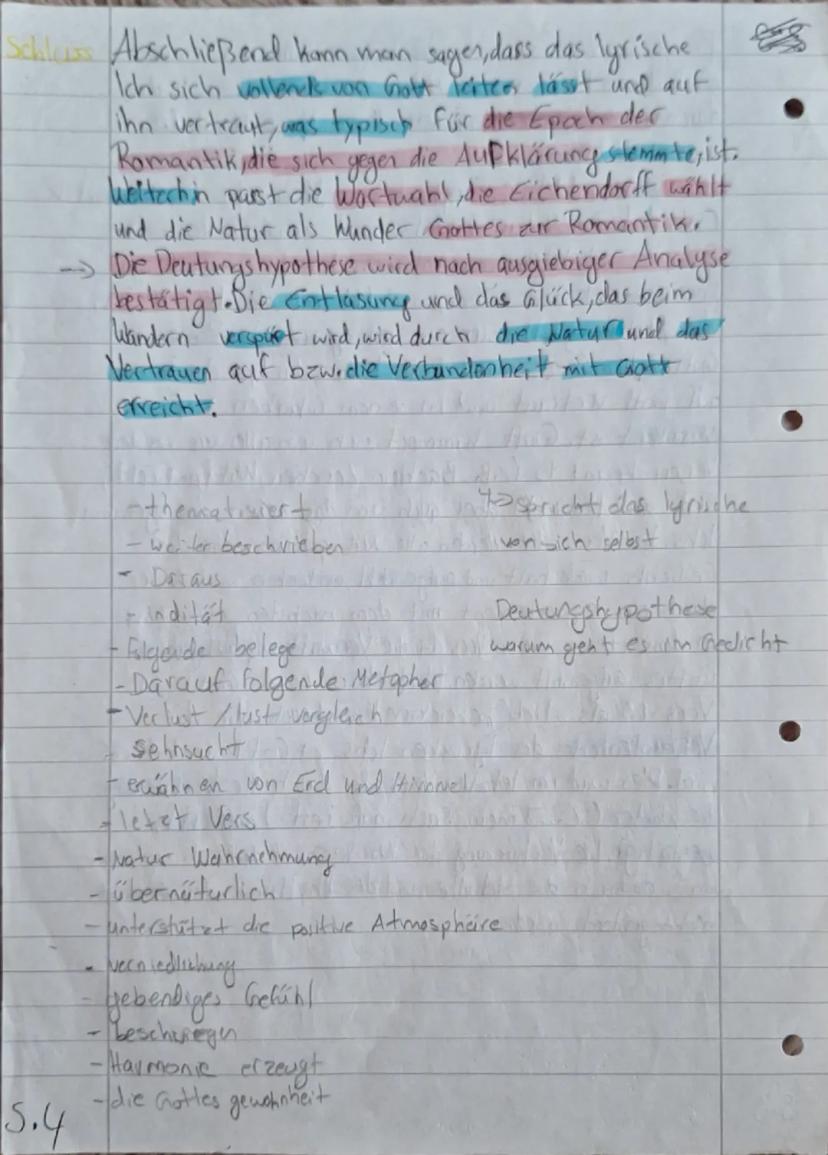 Schluss Abschließend kann man sagen, dass das lyrische
Ich sich vollends von Gott leiten lässt und auf
ihn vertraut, was typisch für die Epoch der
Romantik, die sich gegen die Aufklärung stemmte, ist.
Weiterhin passt die Wortwahl, die Eichendorff wählt
und die Natur als Wunder Gottes zur Romantik.
-> Die Deutungshypothese wird nach ausgiebiger Analyse
bestätigt. Die Entlasung und das Glück, das beim
Wandern verspürt wird, wird durch die Natur und das
Vertrauen auf bzw. die Verbundenheit mit Gott
erreicht.
- thematisiert
- weiter beschrieben
- Daraus
- indität
- folgende belege
- Darauf folgende Metapher
- Verlust / lust vergleich
- Sehnsucht
- erwähnen von Erd und Himmel
- letzt Vers
- Natur Wahrnehmung
- übernatürlich
- unterstützt die positive Atmosphäre
- verniedlichung
- gebendiges Gefühl
-
- Harmonie erzeugt
- die Gottes gewohnheit
↳ spricht das lyrische
von sich selbst
Deutungshypothese
warum geht es im Gedicht
S.4